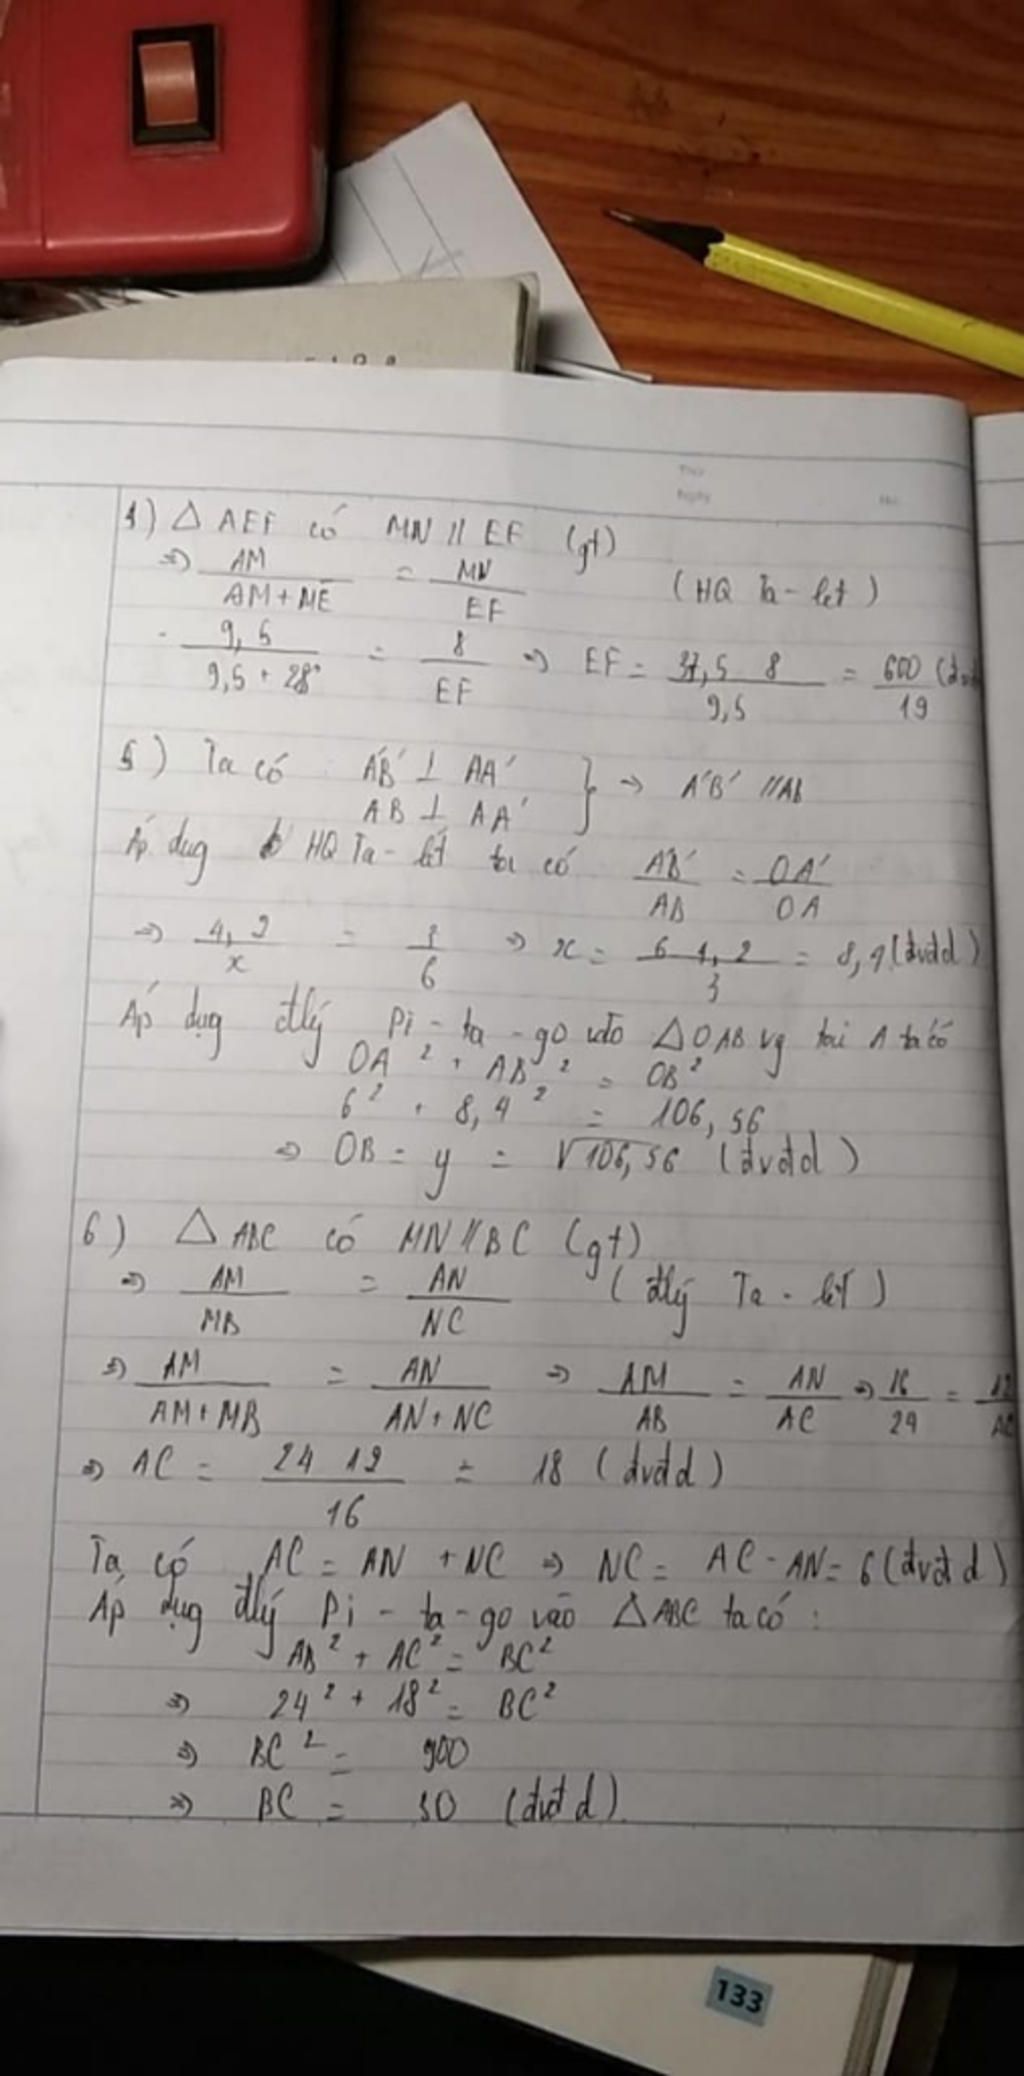 Thứ
Ngày
No.
4) △ AEF có MN // EF (gt)
=> AM / AM + ME = MN / EF (HQ Ta-let)
9,5 / 9,5 + 28 = 8 / EF => EF = 37,5 8 / 9,5 = 600 / 19
5) Ta có A'B' ⊥ AA'
AB ⊥ AA' } => A'B' // AB
Áp dụg HQ Ta-lét ta có A'B' / AB = OA' / OA
=> 4,2 / x = 3 / 6 => x = 6 4,2 / 3 = 8,4 (đvđd)
Áp dụg đlý Pi-ta-go vào △OAB vg tại A ta có
OA² + AB² = OB²
6² + 8,4² = 106,56
=> OB = y = √106,56 (đvđd)
6) △ ABC có MN // BC (gt)
=> AM / MB = AN / NC (đlý Ta-lét)
=> AM / AM + MB = AN / AN + NC => AM / AB = AN / AC => 16 / 24 = 12 / AC
=> AC = 24 12 / 16 = 18 (đvđd)
Ta có AC = AN + NC => NC = AC - AN = 6 (đvđd)
Áp dụg đlý Pi-ta-go vào △ABC ta có:
AB² + AC² = BC²
=> 24² + 18² = BC²
=> BC² = 900
=> BC = 30 (đvđd)
133